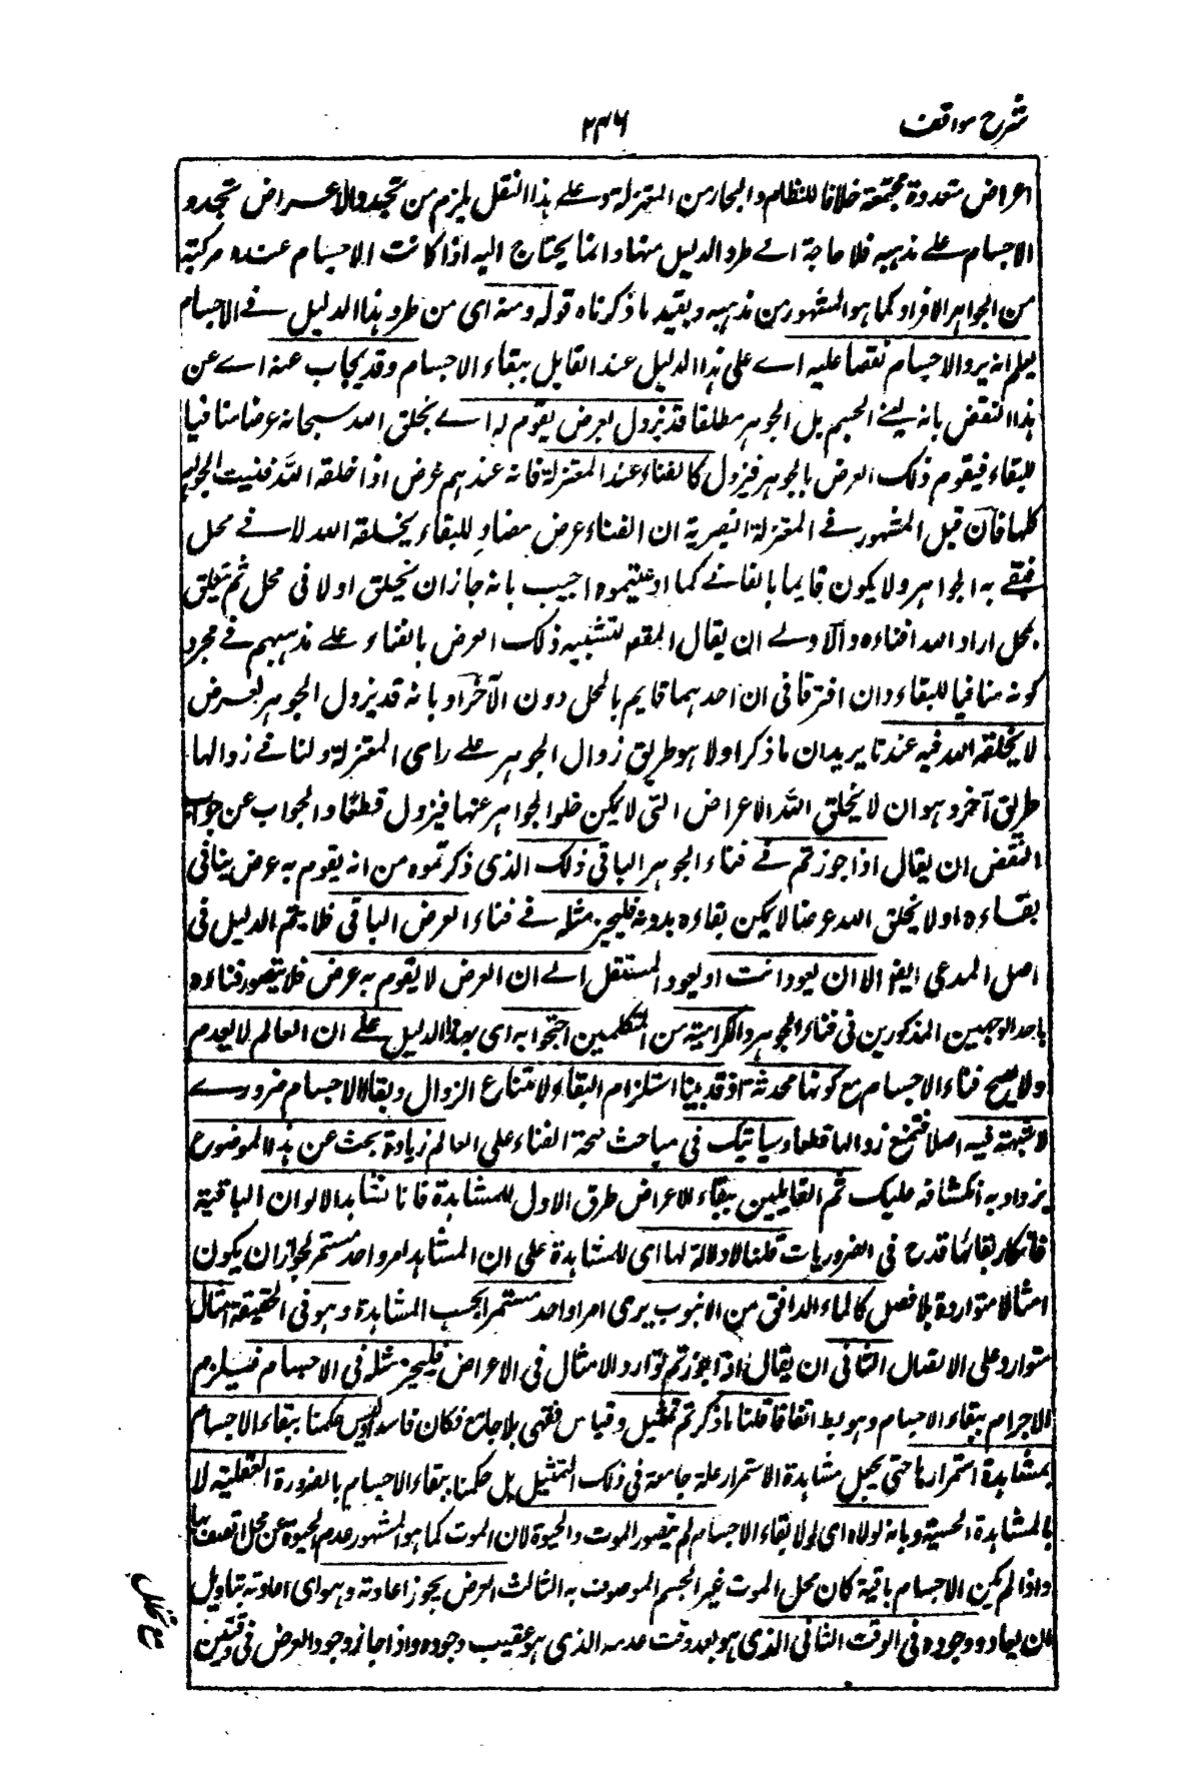 شرح مواقف
۲۳۶
اعراض متعددة مجتمعة خلافا للنظام والنجار من المعتزلة وعلى هذا النقل يلزم من تجدد الاعراض تجدد
الاجسام على مذهبه فلا حاجة الى طرد الدليل منها وانما يحتاج اليه اذا كانت الاجسام عنده مركبة
من الجواهر الافراد كما هو المشهور من مذهبه ويفيد ما ذكرناه قوله ومنه اى من طرد هذا الدليل فى الاجسام
يعلم انه يرد الاجسام نقضا عليه اى على هذا الدليل عند القايل ببقاء الاجسام وقد يجاب عنه اى عن
هذا النقض بانه يعنى الجسم بل الجوهر مطلقا قد يزول لعرض يقوم به اى بخلق الله سبحانه عرضا منافيا
للبقاء فيقوم ذلك العرض بالجوهر فيزول كالفناء عند المعتزلة فانه عندهم عرض اذا خلقه الله فنيت الجواهر
كلها فان قيل المشهور فى المعتزلة البصرية ان الفناء عرض مضاد للبقاء يخلقه الله لا فى محل
فيفنى به الجواهر ولا يكون قايما بالفانى كما ادعيتموه اجيب بانه جاز ان يخلق اولا فى محل ثم يتعلق
بمحل اراد الله افناءه والاولى ان يقال المقصود تشبيه ذلك العرض بالفناء على مذهبهم فى مجرد
كونه منافيا للبقاء وان افترقا فى ان احدهما قايم بالمحل دون الآخر او بانه قد يزول الجوهر لعرض
لا يخلقه الله فيه عندنا يريد ان ما ذكر اولا هو طريق زوال الجوهر على راى المعتزلة ولنا فى زوالها
طريق آخر وهو ان لا يخلق الله الاعراض التى لا يمكن خلو الجواهر عنها فيزول قطعا والجواب عن جواب
النقض ان يقال اذا جوزتم فى فناء الجوهر الباقى ذلك الذى ذكرتموه من انه يقوم به عرض ينافى
بقاءه او لا يخلق الله عرضا لا يمكن بقاءه بدونه فليجز مثله فى فناء العرض الباقى فلا يتم الدليل فى
اصل المدعى ايضا الا ان يعود انت او يعود المستقل الى ان العرض لا يقوم به عرض فلا يتصور فناءه
باحد الوجهين المذكورين فى فناء الجوهر والكرامية من المتكلمين احتجوا به اى بهذا الدليل على ان العالم لا يعدم
ولا يصح فناء الاجسام مع كونها محدثة اذ قد بينا استلزام البقاء لامتناع الزوال وبقاء الاجسام ضرورى
لا شبهة فيه اصلا فتمنع زوالها قطعا وسياتيك فى مباحث صحة الفناء على العالم زيادة بحث عن هذا الموضوع
يزداد به انكشافه عليك ثم القايلين ببقاء الاعراض طرق الاول المشاهدة فانا نشاهد الالوان باقية
فانكار بقائها قدح فى الضروريات قلنا لا دلالة لها اى للمشاهدة على ان المشاهد امر واحد مستمر لجواز ان يكون
امثالا متواردة بلا فصل كالماء الدافق من الانبوب يرى امرا واحدا مستمرا بحسب المشاهدة وهو فى الحقيقة امثال
متوارد على الاتصال الثانى ان يقال اذا جوزتم توارد الامثال فى الاعراض فليجز مثله فى الاجسام فيلزم
الاجزام ببقاء الاجسام وهو بط اتفاقا قلنا ما ذكرتم تمثيل وقياس فقهى بلا جامع فكان فاسدا وليس حكمنا ببقاء الاجسام
بمشاهدة استمرارها حتى يجعل مشاهدة الاستمرار علة جامعة فى ذلك التمثيل بل حكمنا ببقاء الاجسام بالضرورة العقلية لا
بالمشاهدة الحسية وبانه لولاه اى لولا بقاء الاجسام لم يتصور الموت والحيوة لان الموت كما هو المشهور عدم الحيوة عن محل اتصف بها
واذا لم يكن الاجسام باقية كان محل الموت غير الجسم الموصوف به الثالث العرض يجوز اعادته وهو اى اعادته بتاويل
ان يعاد وجوده فى الوقت الثانى الذى هو بعد وقت عدمه الذى هو عقيب وجوده واذا جاز وجود العرض فى وقتين